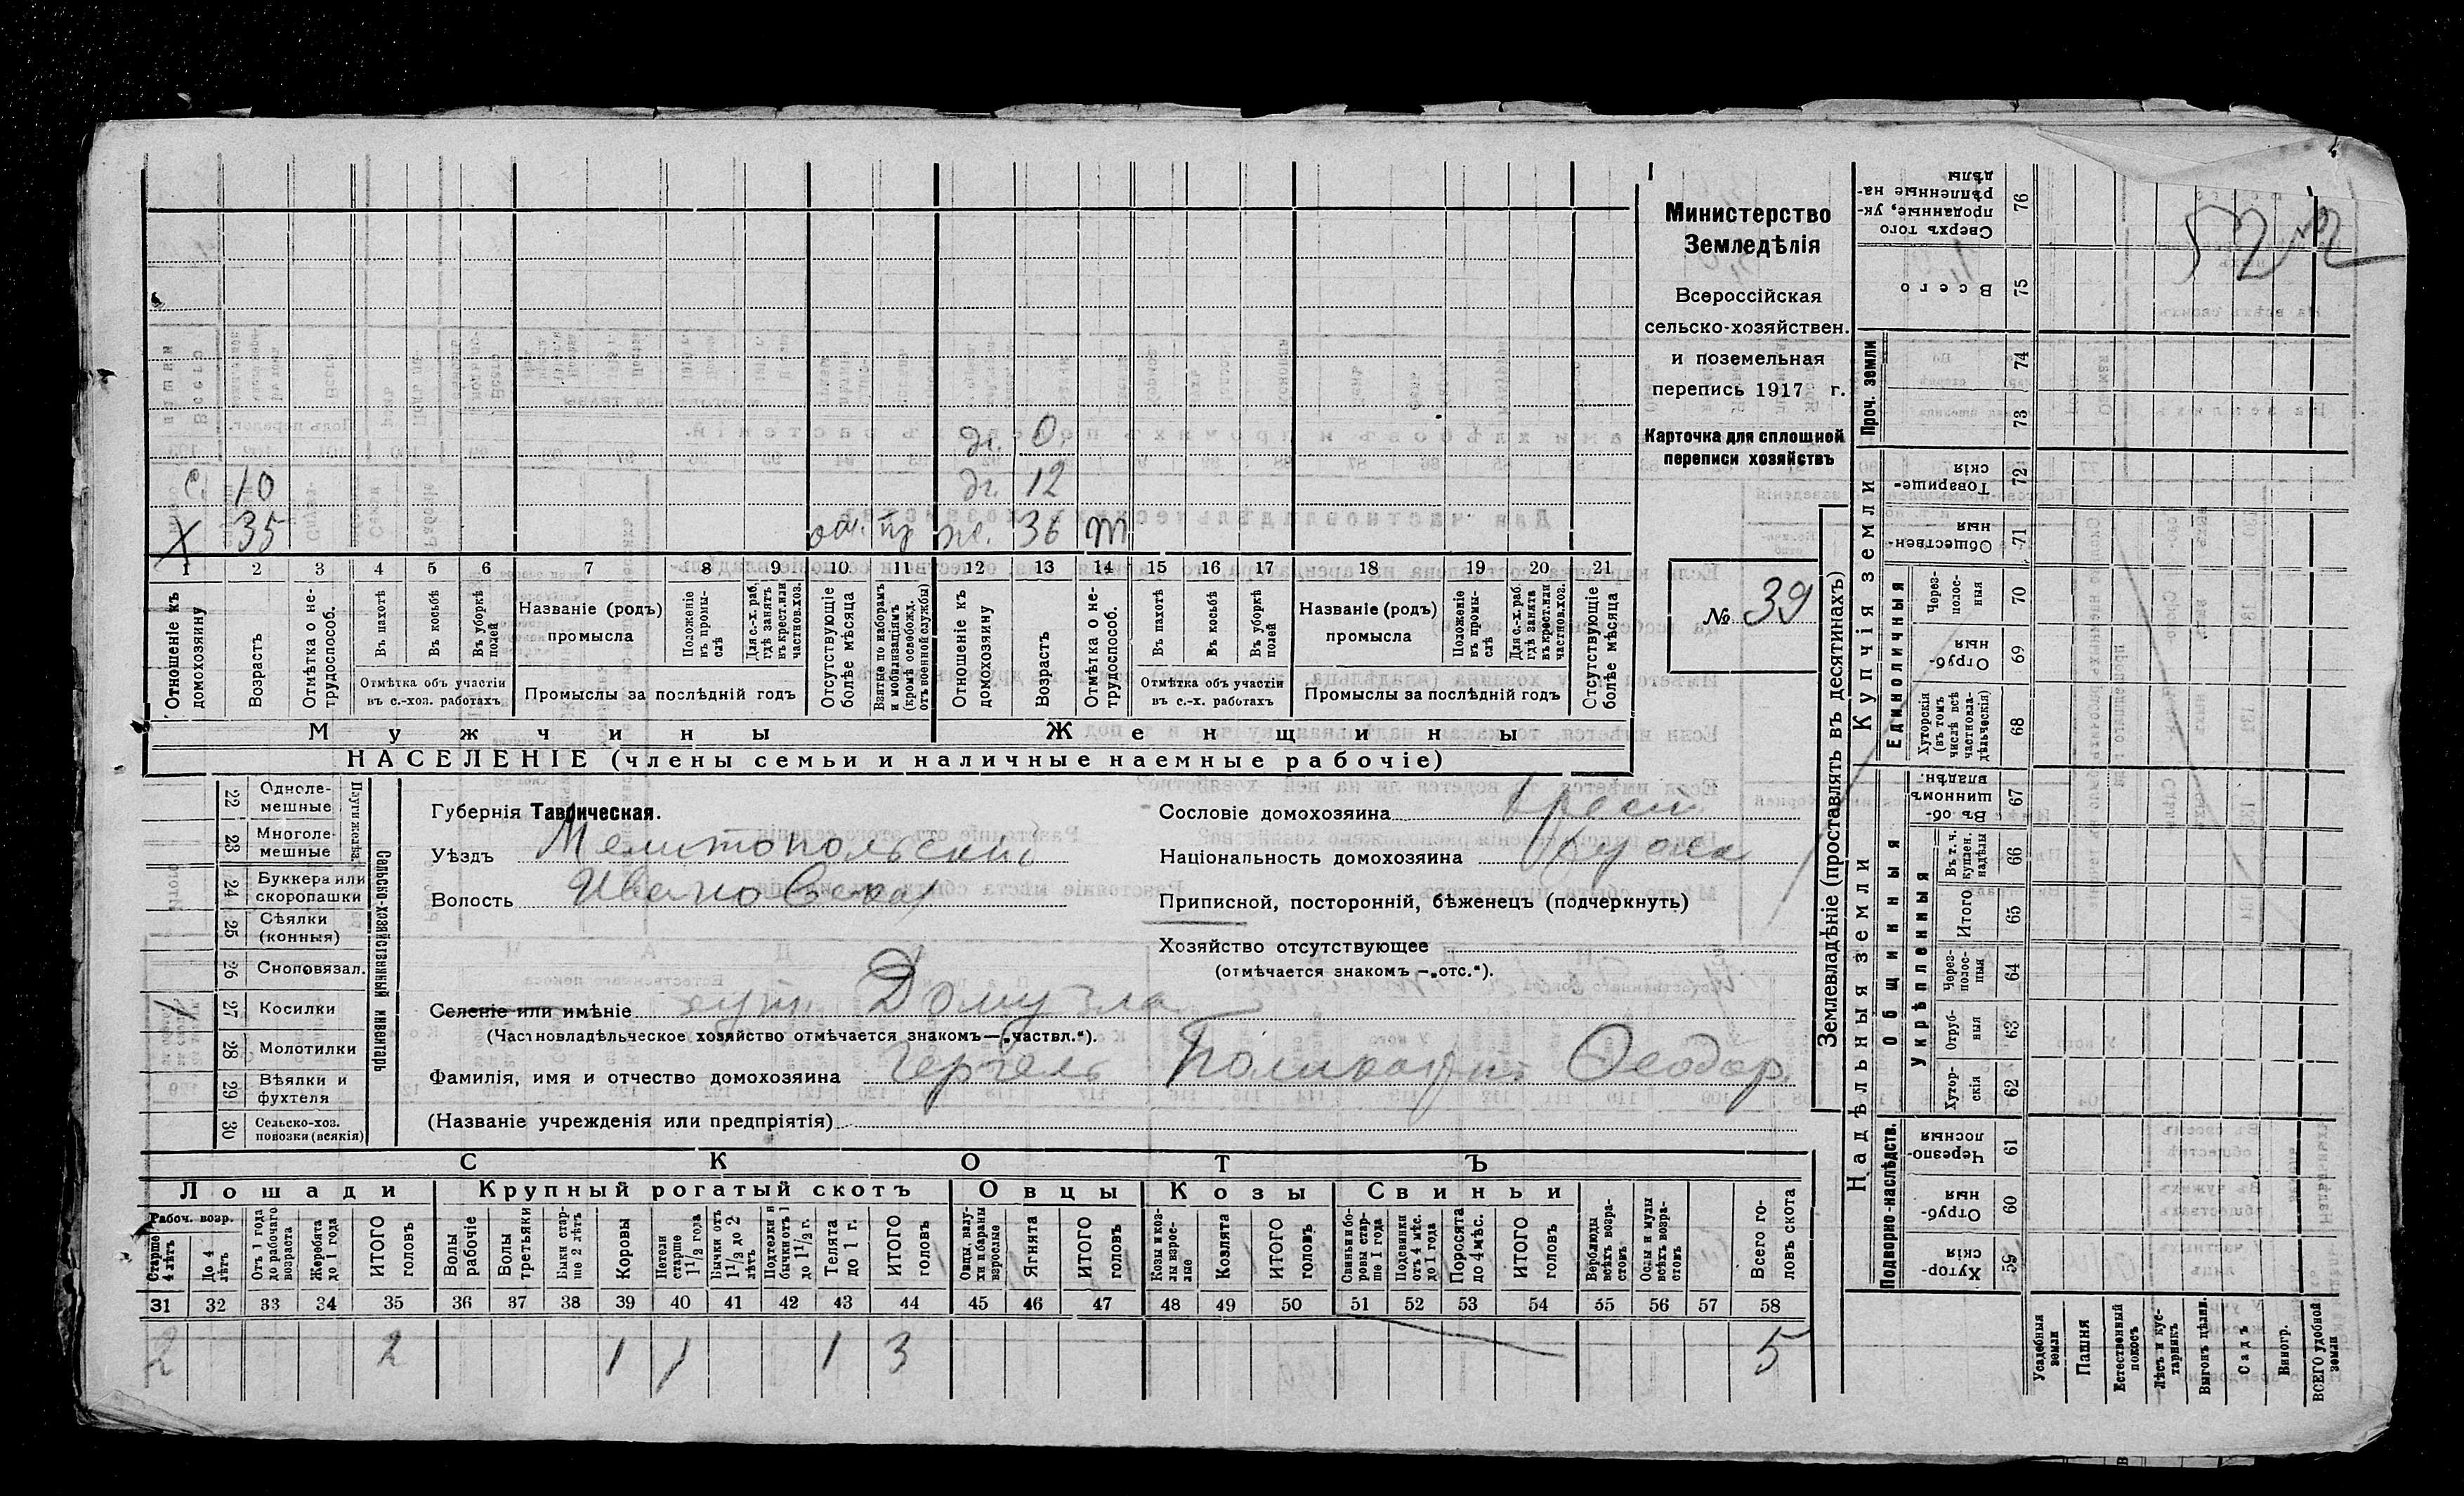 Министерство
Земледѣлія
Всероссійская
сельско-хозяйствен.
и поземельная
перепись 1917 г.
Карточка для сплошной
переписи хозяйствъ
№ 39
522
др. 0
С 10 др. 12
X 35 36 m
1 2 3 4 5 6 7 8 9 10 11 12 13 14 15 16 17 18 19 20 21
Отношеніе къ домохозяину
Возрастъ
Отмѣтка о не-трудоспособ.
Въ пахотѣ
Въ косьбѣ
Въ уборкѣ полей
Отмѣтка объ участіи въ с.-хоз. работахъ
Названіе (родъ) промысла
Положеніе въ промы-слѣ
Для с.-х. раб. гдѣ занятъ въ крест. или частнов. хоз.
Промыслы за послѣдній годъ
Отсутствующіе болѣе мѣсяца
Взятые по наборамъ и мобилизаціямъ (кромѣ освобожд. отъ военной службы)
Отношеніе къ домохозяину
Возрастъ
Отмѣтка о не-трудоспособ.
Въ пахотѣ
Въ косьбѣ
Въ уборкѣ полей
Отмѣтка объ участіи въ с.-х. работахъ
Названіе (родъ) промысла
Положеніе въ промы-слѣ
Для с.-х. раб. гдѣ занята въ крест. или частнов. хоз.
Промыслы за послѣдній годъ
Отсутствующіе болѣе мѣсяца
Мужчины Женщины
НАСЕЛЕНІЕ (члены семьи и наличные наемные рабочіе)
22 Одноле-мешные
23 Многоле-мешные
24 Буккера или скоропашки
25 Сѣялки (конныя)
26 Сноповязал.
27 Косилки 1
28 Молотилки
29 Вѣялки и фухтеля
30 Сельско-хоз. повозки (всякія)
Плуги и сохи
Сельско-хозяйственный инвентарь
Губернія Таврическая.
Уѣздъ Мелитопольскій
Волость Ивановская
Селеніе или имѣніе хут. Домузла
(Частновладѣльческое хозяйство отмѣчается знакомъ—„частвл.“).
Фамилія, имя и отчество домохозяина Гергель Поликарпъ Ѳеодор.
(Названіе учрежденія или предпріятія)
Сословіе домохозяина крест.
Національность домохозяина
Приписной, посторонній, бѣженецъ (подчеркнуть)
Хозяйство отсутствующее
(отмѣчается знакомъ —„отс.“).
СКОТЪ
Лошади Крупный рогатый скотъ Овцы Козы Свиньи
Рабоч. возр.
Старше 4 лѣтъ
До 4 лѣтъ
Отъ 1 года до рабочаго возраста
Жеребята до 1 года
ИТОГО головъ
Волы рабочіе
Волы третьяки
Быки стар-ше 2 лѣтъ
Коровы
Нетели старше 1 1/2 года
Бычки отъ 1 1/2 до 2 лѣтъ
Подтелки и бычки отъ 1 до 1 1/2 г.
Телята до 1 г.
ИТОГО головъ
Овцы, валу-хи и бараны взрослые
Ягнята
ИТОГО головъ
Козы и коз-лы взрос-лые
Козлята
ИТОГО головъ
Свиньи и бо-ровы стар-ше 1 года
Подсвинки отъ 4 мѣс. до 1 года
Поросята до 4 мѣс.
ИТОГО головъ
Верблюды всѣхъ возра-стовъ
Ослы и мулы всѣхъ возра-стовъ
Всего го-ловъ скота
31 32 33 34 35 36 37 38 39 40 41 42 43 44 45 46 47 48 49 50 51 52 53 54 55 56 57 58
2 2 1 1 1 3 5
Землевладѣніе (проставлять въ десятинахъ)
Надѣльныя земли Купчія земли
Подворно-наслѣдств. Общинныя Единоличныя Проч. земли
Укрѣпленныя
76 Сверхъ того проданные, ук-рѣпленные на-дѣлы
75 Всего
74
73
72 Товарище-скія
71 Обществен-ныя
70 Через-полос-ныя
69 Отруб-ныя
68 Хуторскія (въ томъ числѣ всѣ частновла-дѣльческія)
67 Въ об-щинномъ владѣн.
66 Въ т. ч. куплен. надѣлы
65 Итого
64 Через-полос-ныя
63 Отруб-ныя
62 Хутор-скія
61 Черезпо-лосныя
60 Отруб-ныя
59 Хутор-скія
Усадебныя земли
Пашня
Естественный покосъ
Лѣсъ и кус-тарникъ
Выгонъ цѣлин.
Садъ
Виногр.
ВСЕГО удобной земли